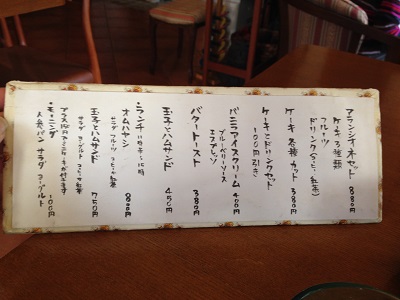 アランシィオセット 880円
ケーキ3種類
フルーツ
ドリンク(こーヒ、紅茶)
ケーキ 各種 カット 380円
ケーキとドリンクセット
100円引き
バニラアイスクリーム 400円
ブルーベリーソース
エスプレソ
バタートースト 380円
玉子とハムサンド 450円
・ランチ
オムハヤシ 800円
サラダ フルーツ
玉子とハムサンド 750円
サラダ ヨーグルト
プラス150円でミニケーキが付きます
・モーニング
サラダ ヨーグルト